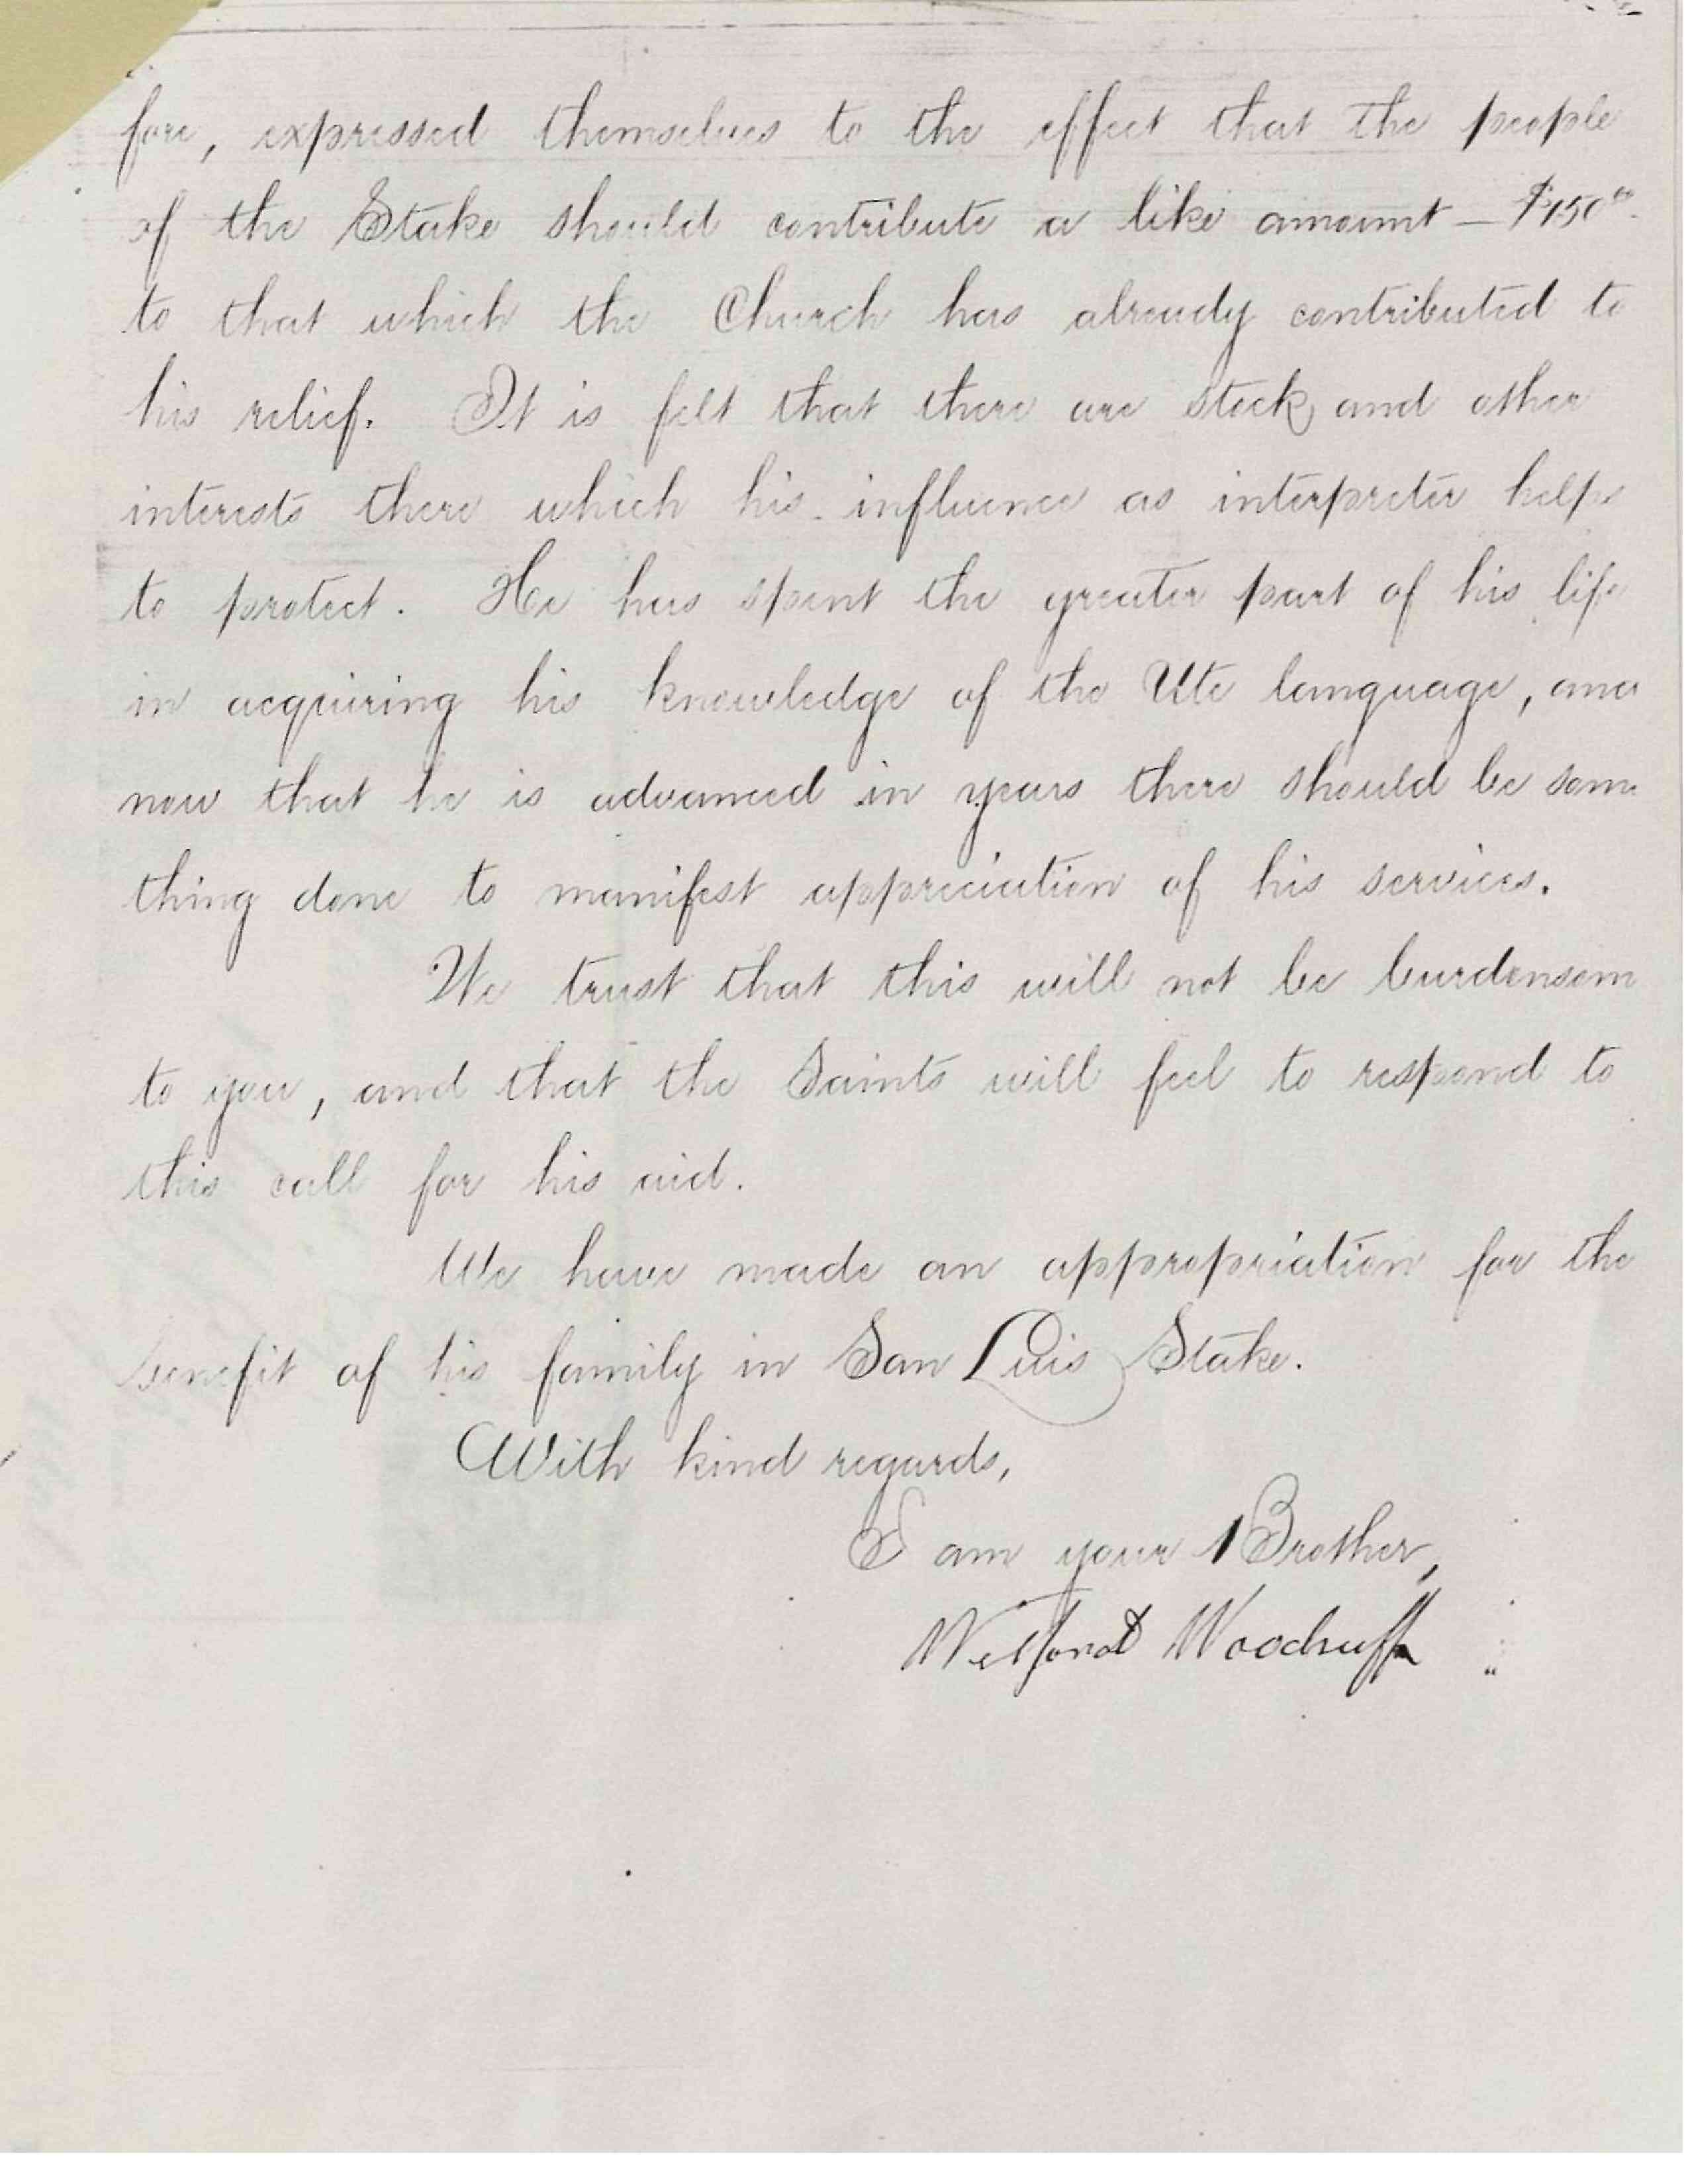 fore, expressed themselves to the effect that the people
of the Stake should contribute a like amount — $150⁰⁰
to that which the Church has already contributed to
his relief. It is felt that there are stock and other
interests there which his influence as interpreter helps
to protect. He has spent the greater part of his life
in acquiring his knowledge of the Ute language, and
now that he is advanced in years there should be some
thing done to manifest appreciation of his services.
We trust that this will not be burdensom
to you, and that the Saints will feel to respond to
this call for his aid.
We have made an appropriation for the
benefit of his family in San Luis Stake.
With kind regards,
I am your Brother,
Wilford Woodruff